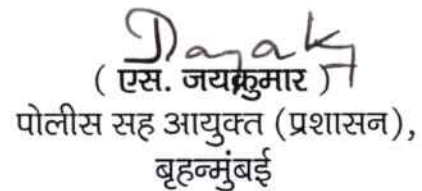 ( एस. जयकुमार )
पोलीस सह आयुक्त (प्रशासन),
बृहन्मुंबई